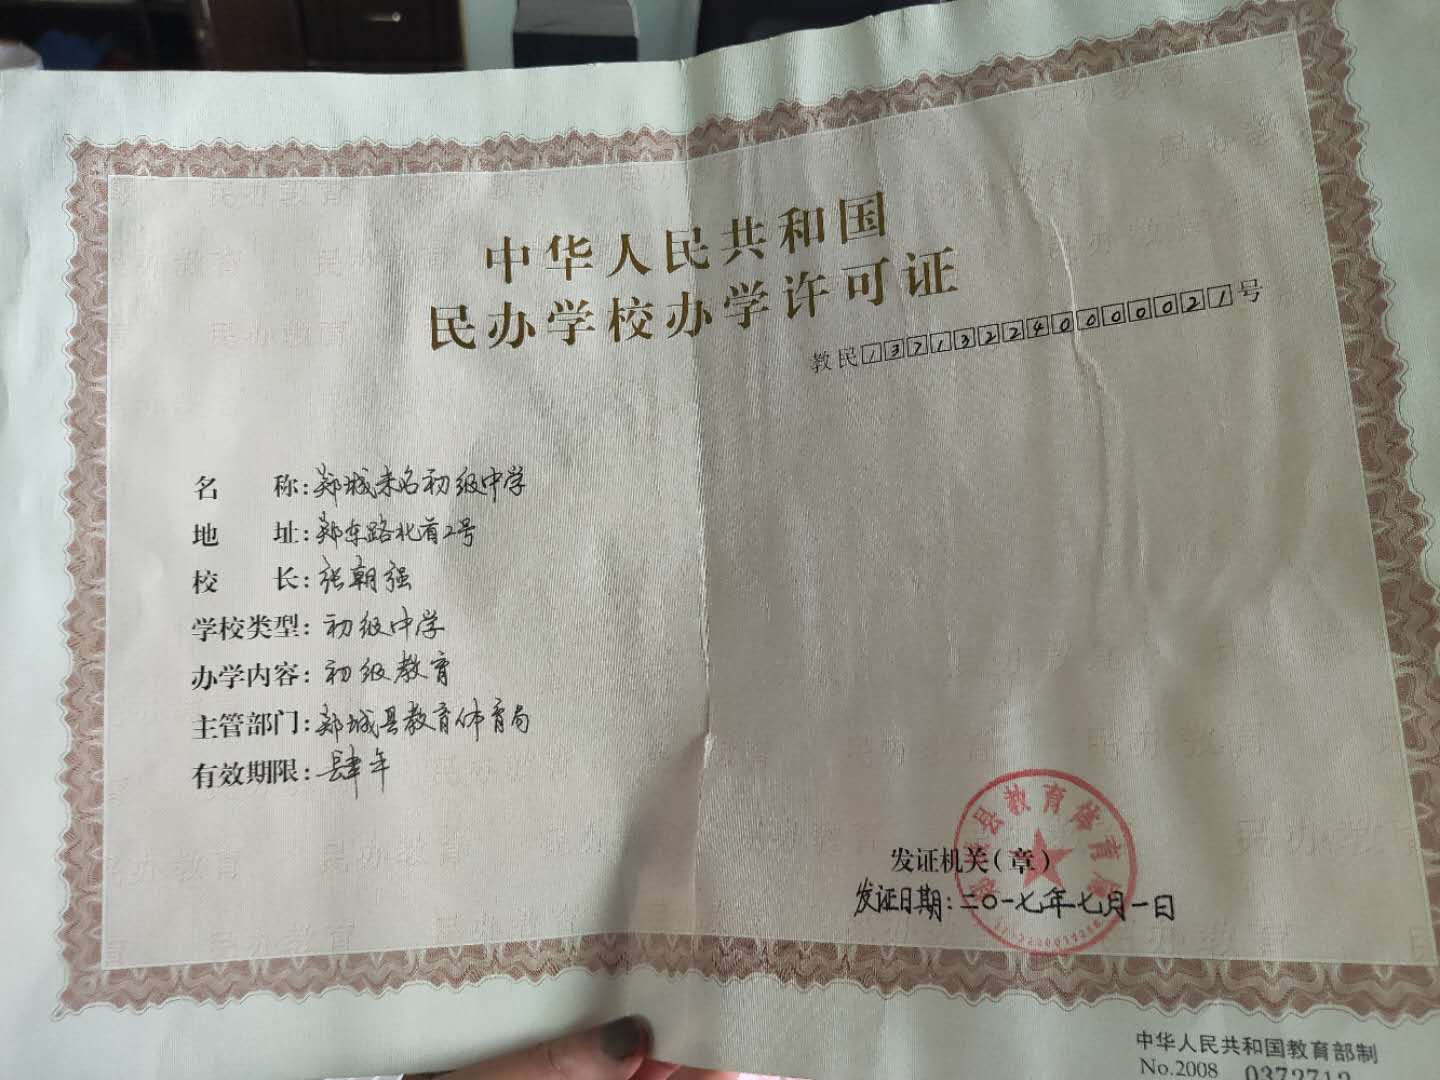 中华人民共和国
民办学校办学许可证
教民137132240000021号
名 称:郯城未名初级中学
地 址:郯东路北首2号
校 长:张朝强
学校类型:初级中学
办学内容:初级教育
主管部门:郯城县教育体育局
有效期限:肆年
县教育体育局
发证机关(章)
发证日期:二〇一七年七月一日
中华人民共和国教育部制
No.2008 0372712